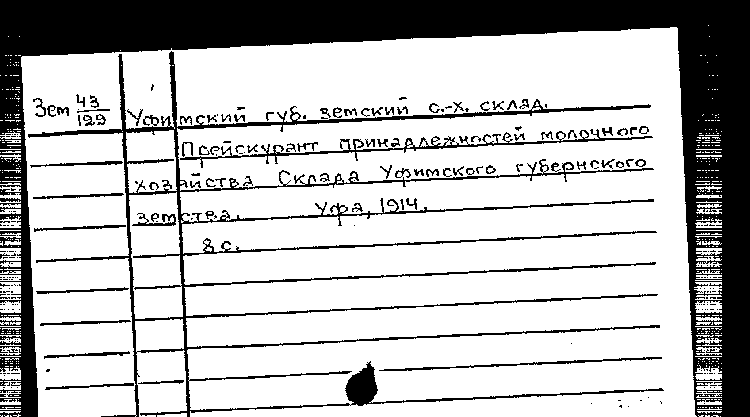 Зем 43/129
Уфимский губ. земский с.-х. склад.
Прейскурант принадлежностей молочного
хозяйства Склада Уфимского губернского
земства. Уфа, 1914.
8 с.